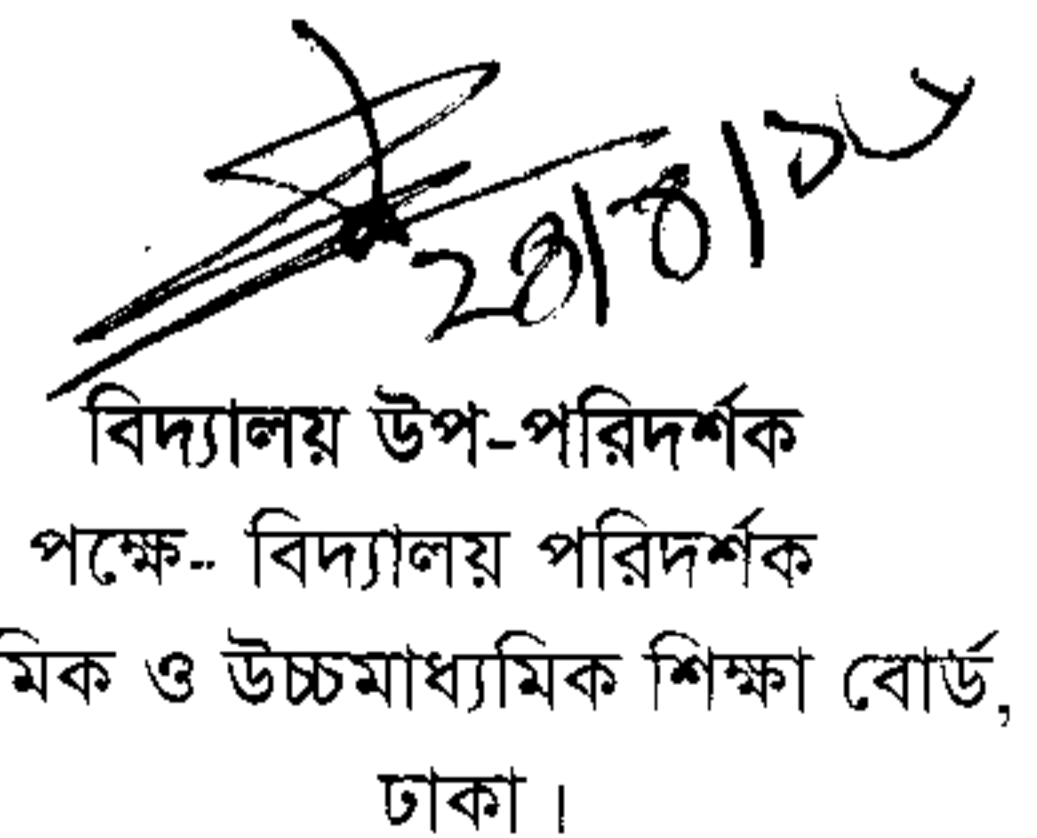 ২৪/৪/১৮
বিদ্যালয় উপ-পরিদর্শক
পক্ষে-- বিদ্যালয় পরিদর্শক
মিক ও উচ্চমাধ্যমিক শিক্ষা বোর্ড,
ঢাকা ।